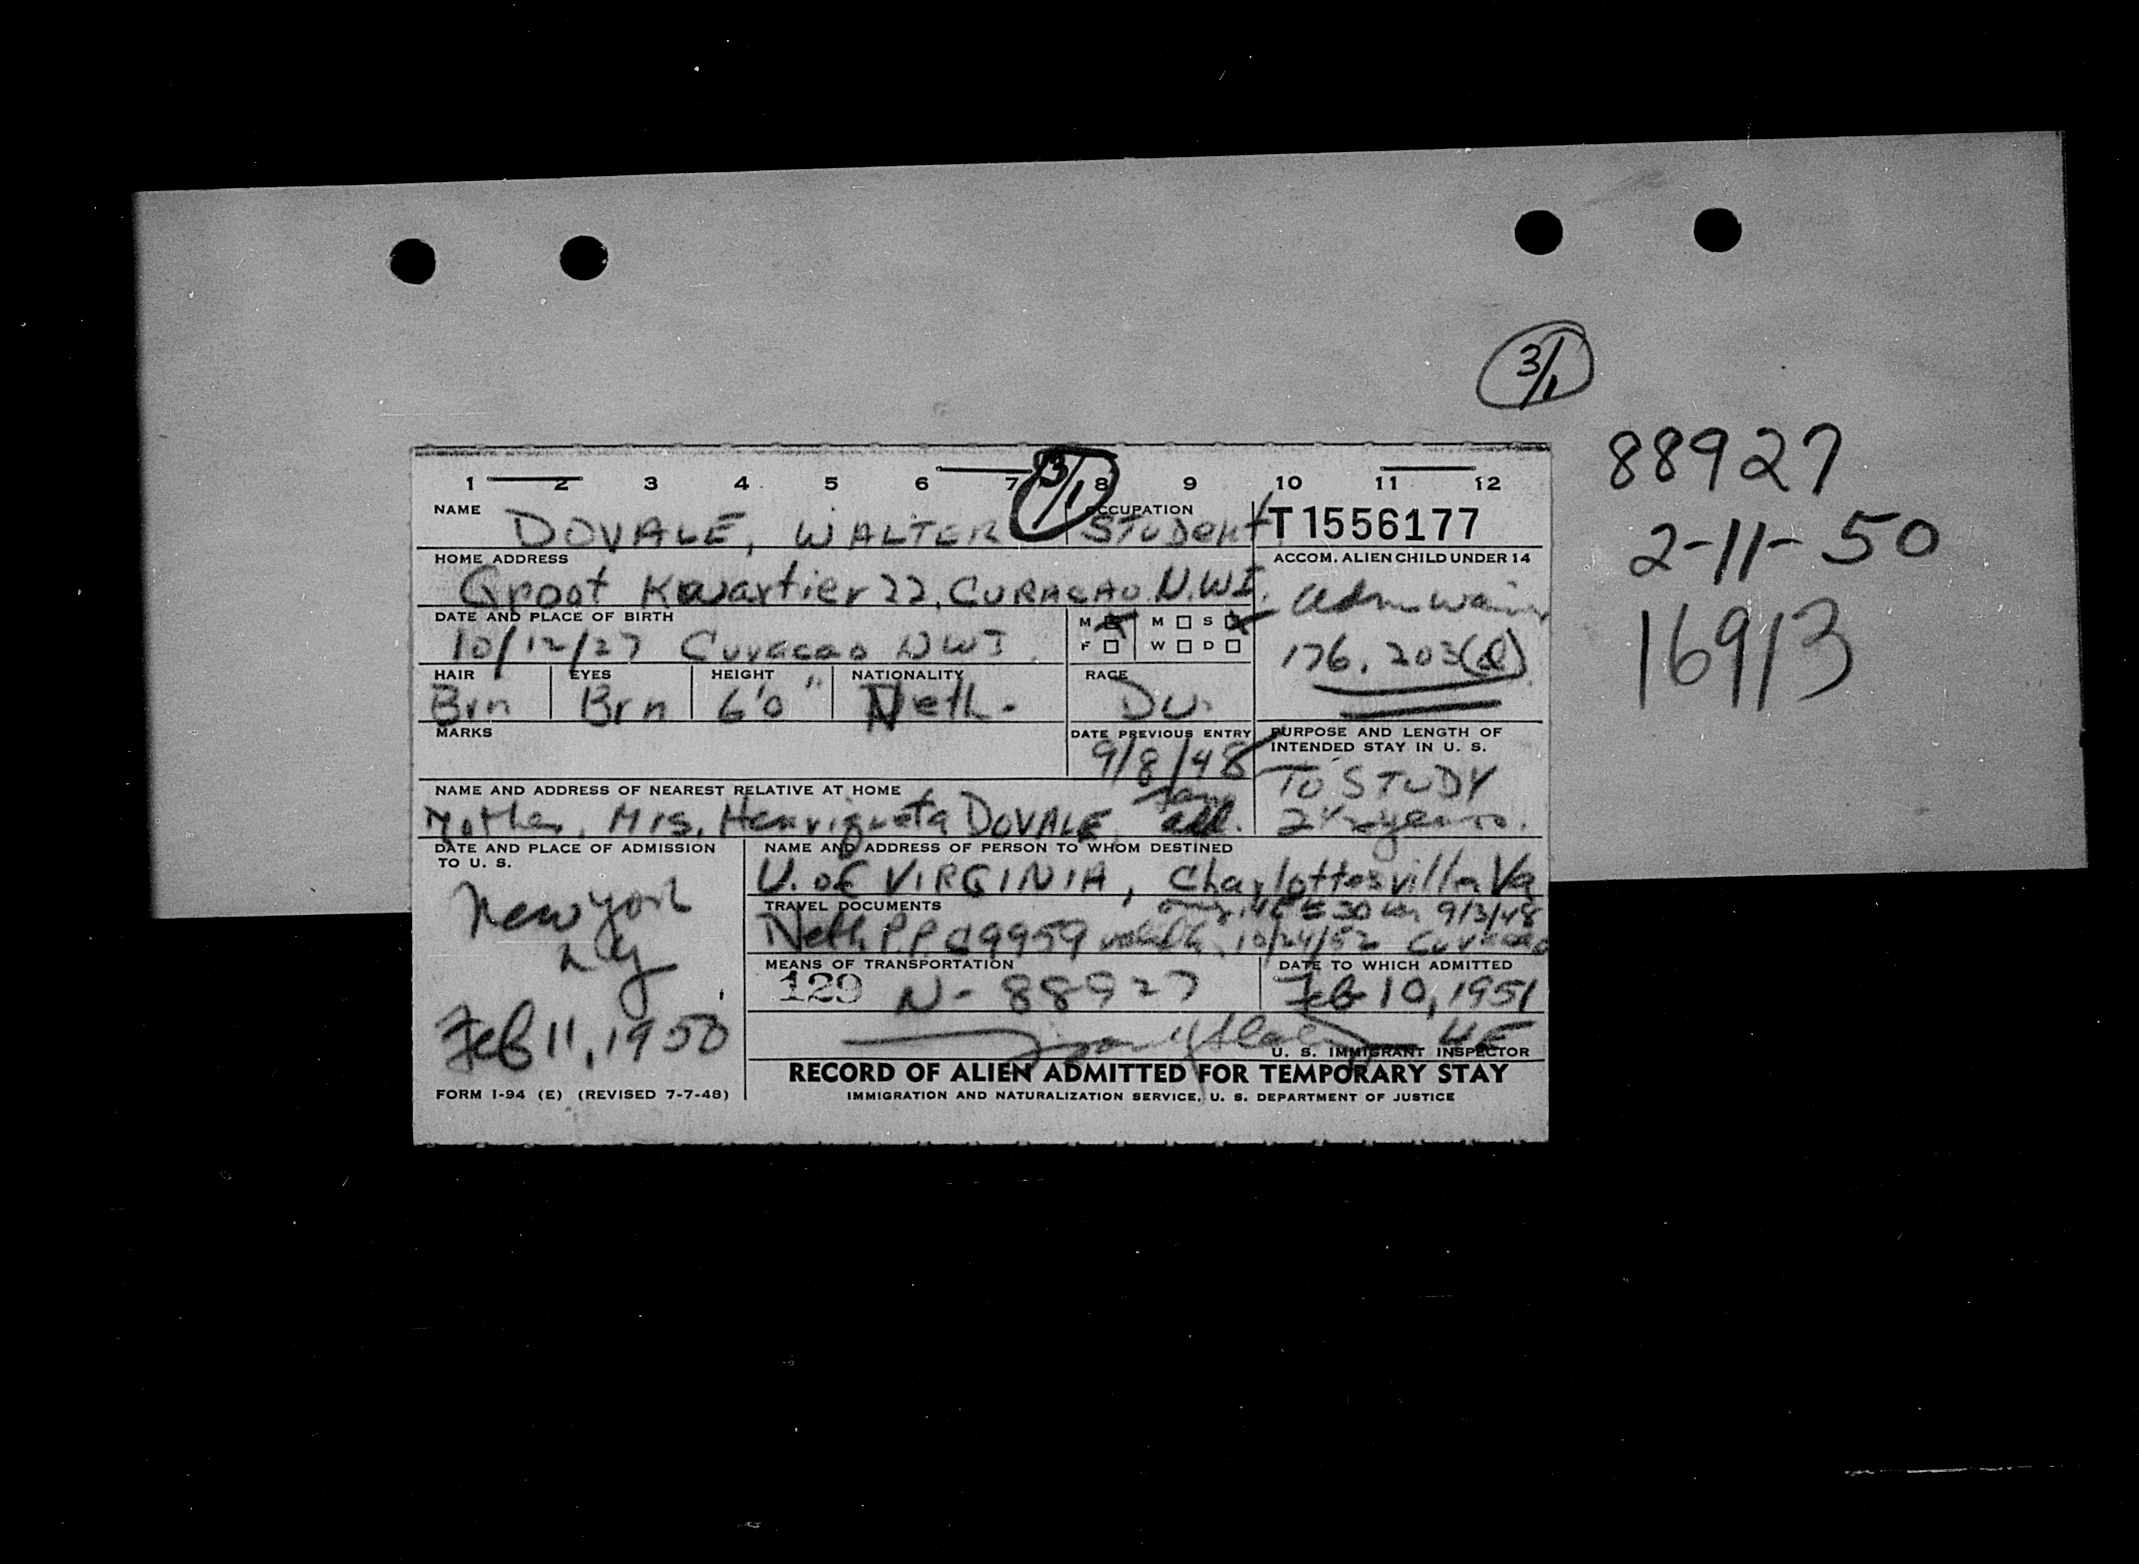 3/1
88927
2-11-50
16913
1 2 3 4 5 6 7 8 9 10 11 12
3/1
NAME OCCUPATION
DOVALE, WALTER Student T1556177
HOME ADDRESS ACCOM. ALIEN CHILD UNDER 14
Groot Kwartier 22, CURACAO N.W.I.
Adm. 
DATE AND PLACE OF BIRTH M M S
10/12/27 Curacao NWI. F W D
176.203(d)
HAIR EYES HEIGHT NATIONALITY RACE
Brn Brn 6'0" Neth. Du.
MARKS DATE PREVIOUS ENTRY PURPOSE AND LENGTH OF
INTENDED STAY IN U. S.
9/8/48 TO STUDY
NAME AND ADDRESS OF NEAREST RELATIVE AT HOME
Mother, Mrs. Henriqueta DOVALE, 2½ years.
DATE AND PLACE OF ADMISSION
TO U. S.
NAME AND ADDRESS OF PERSON TO WHOM DESTINED
U. of VIRGINIA, Charlottesville Va
TRAVEL DOCUMENTS 9/3/48
Neth P.P. 10/24/52 Curacao
New York
NY
MEANS OF TRANSPORTATION DATE TO WHICH ADMITTED
129 N-88927 Feb 10, 1951
Feb 11, 1950
U. S. IMMIGRANT INSPECTOR
RECORD OF ALIEN ADMITTED FOR TEMPORARY STAY
FORM I-94 (E) (REVISED 7-7-48) IMMIGRATION AND NATURALIZATION SERVICE, U. S. DEPARTMENT OF JUSTICE